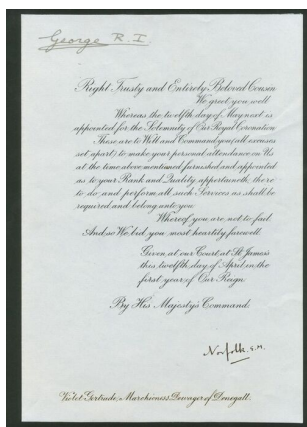 George R.I.
Right Trusty and Entirely Beloved Cousin
We greet you well
Whereas the twelfth day of May next is
appointed for the Solemnity of Our Royal Coronation
These are to Will and Command you (all excuses
set apart) to make your personal attendance on Us
at the time above mentioned furnished and appointed
as to your Rank and Quality appertaineth there
to do and perform all such Services as shall be
required and belong unto you
Whereof you are not to fail
And so We bid you most heartily farewell
Given at our Court at St James's
this twelfth day of April in the
first year of Our Reign
By His Majesty's Command.
Norfolk E.M.
Violet Gertrude, Marchioness Dowager of Donegall.